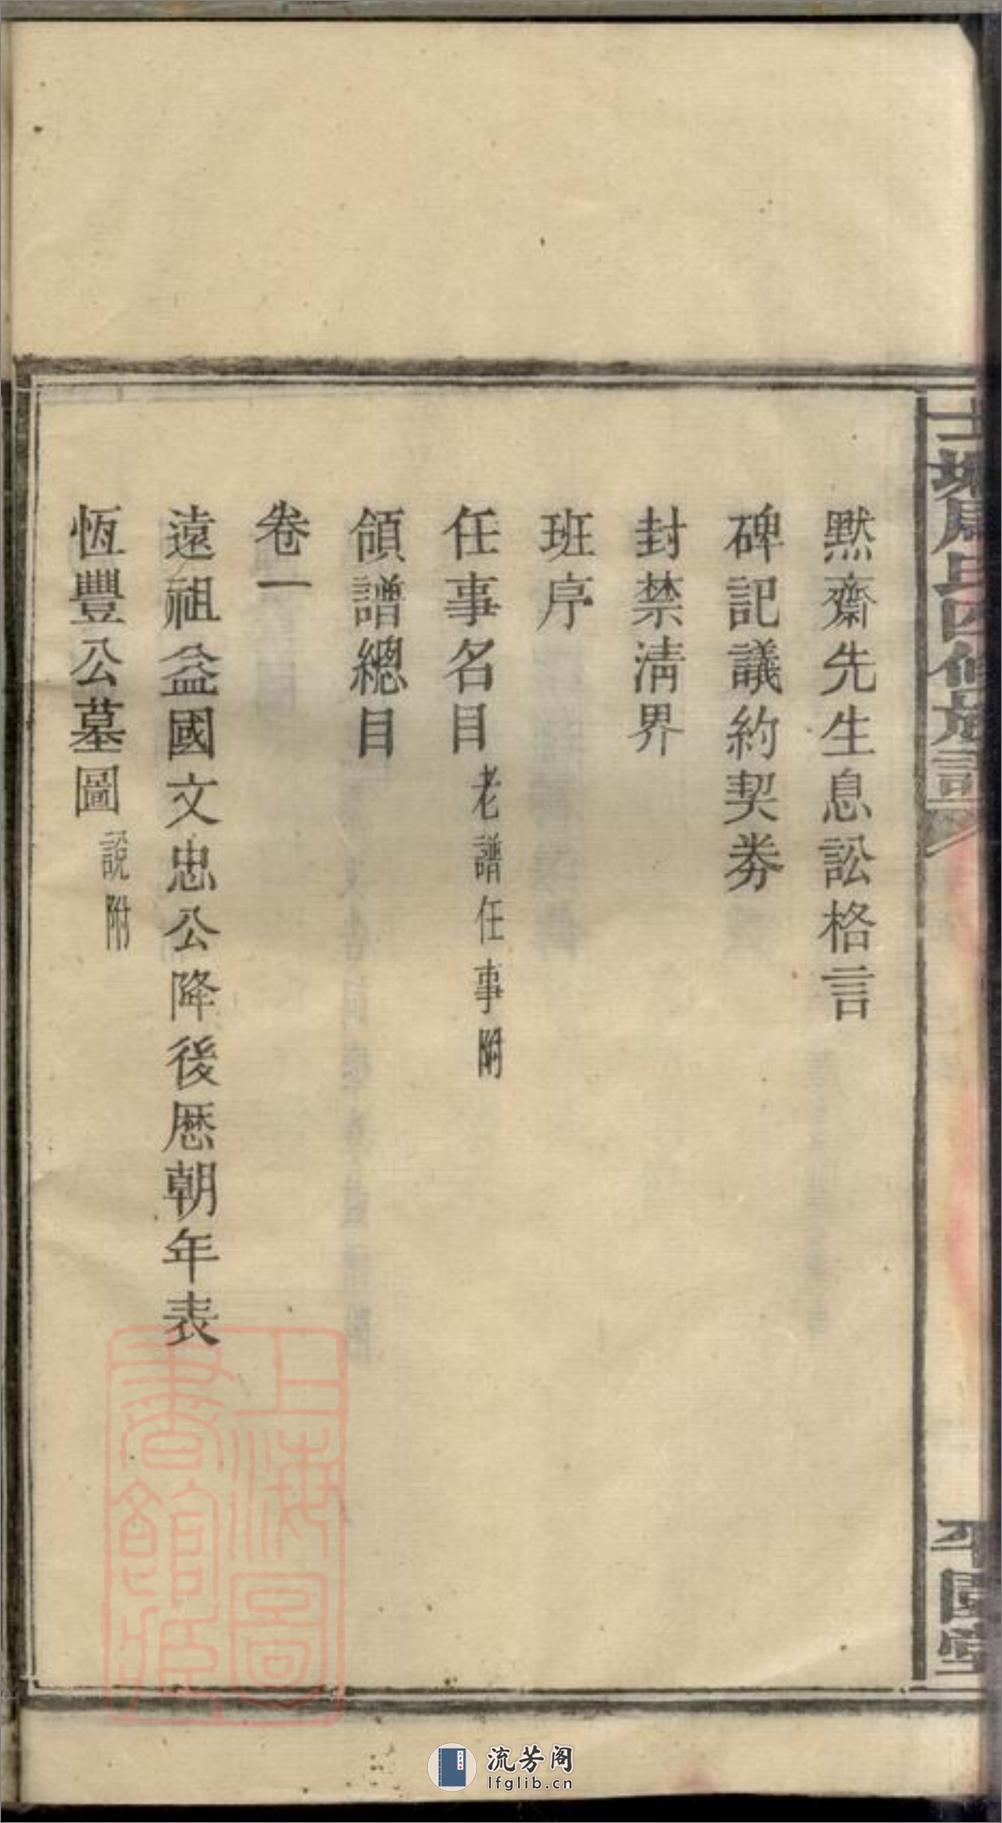 士塘周氏四修族譜
平園堂
默齋先生息訟格言
碑記議約契劵
封禁清界
班序
任事名目 老譜任事附
領譜總目
卷一
遠祖益國文忠公降後厯朝年表
恆豐公墓圖 說附
上海圖書館藏
流芳阁
lfglib.cn